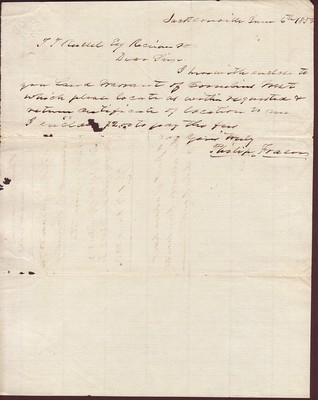 Jacksonville June 6th 185
T. T. Russel Esq Receiver &c
Dear Sir
I herewith enclose to
you Land Warrant of
which please locate as within requested &
return certificate of location to me
I enclose $2.00 to pay the fee
Yours truly
Philip Fraser